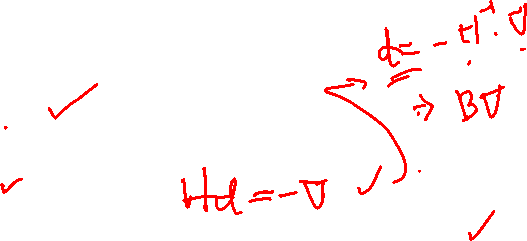 d = -H⁻¹·∇
→ B∇
Hd = -∇